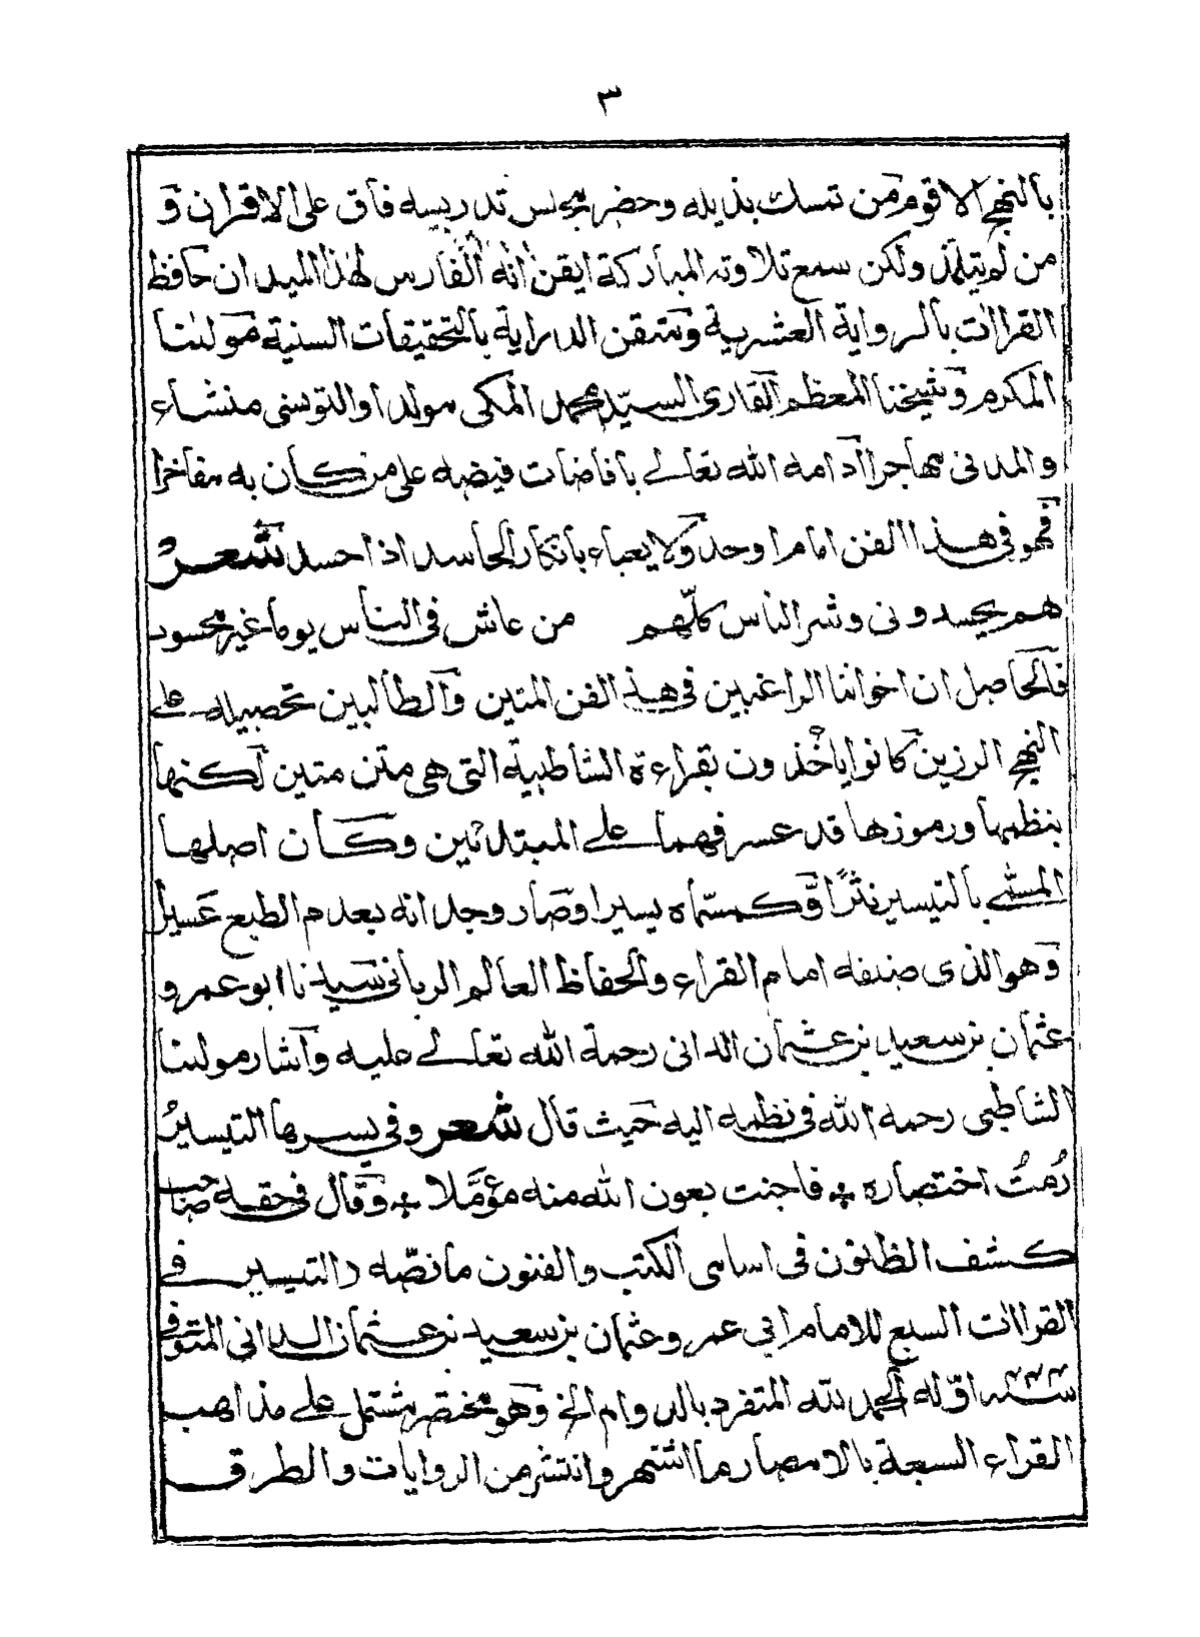 ٣
بالنهج الاقوم من تمسك بذيله وحضر مجلس تدريسه فاق على الاقران و
من لم يتلمذ ولكن سمع تلاوته المباركة ايقن انه الفارس لهذا الميدان حافظ
القراات بالرواية العشرية ومتقن الدراية بالتحقيقات السنية مولٰنا
المكرم وشيخنا المعظم القارى السيّد محمد المكى مولدا والتونسى منشاء
والمدنى مهاجرا ادامه الله تعالے بافاضات فيضه على من كان به مفاخرا
فهو فى هذا الفن امام اوحد ولا يعباء بانكار الحاسد اذا حسد شعرٌ
هم يحسدونى وشر الناس كلّهم من عاش فى الناس يوما غير محسود
فالحاصل ان اخواننا الراغبين فى هذ الفن المتين والطالبين تحصيله علے
النهج الرزين كانوا ياخذون بقراءة الشاطبية التى هى متن متين لكنها
بنظمها ورموزها قد عسر فهما علے المبتدئين وكان اصلها
المسمّے بالتيسير نثرًا وّكمسمّاه يسيرا وصار وجد انه بعدم الطبع عسيرا
وهو الذى صنفه امام القراء والحفاظ العالم الربانى سيدنا ابو عمرو
عثمان بن سعيد بن عثمان الدانى رحمة الله تعالے عليه واشار مولٰنا
الشاطبى رحمه الله فى نظمه اليه حيث قال شعر وفى يسرها التيسيرُ
رُمتُ اختصاره ÷ فاجنت بعون الله منه مؤمَّلا ÷ وقال فى حقه صاحب
كشف الظنون فى اسامى الكتب والفنون ما نصّه دالتيسير فے
القراات السبع للامام ابى عمرو عثمان بن سعيد بن عثمان الدانى المتوفى
سنه ٤٤٤ اوّله الحمد لله المتفرد بالدوام الخ وهو مختصر مشتمل علے مذاهب
القراء السبعة بالامصار وما اشتهر وانتشر من الروايات والطرق